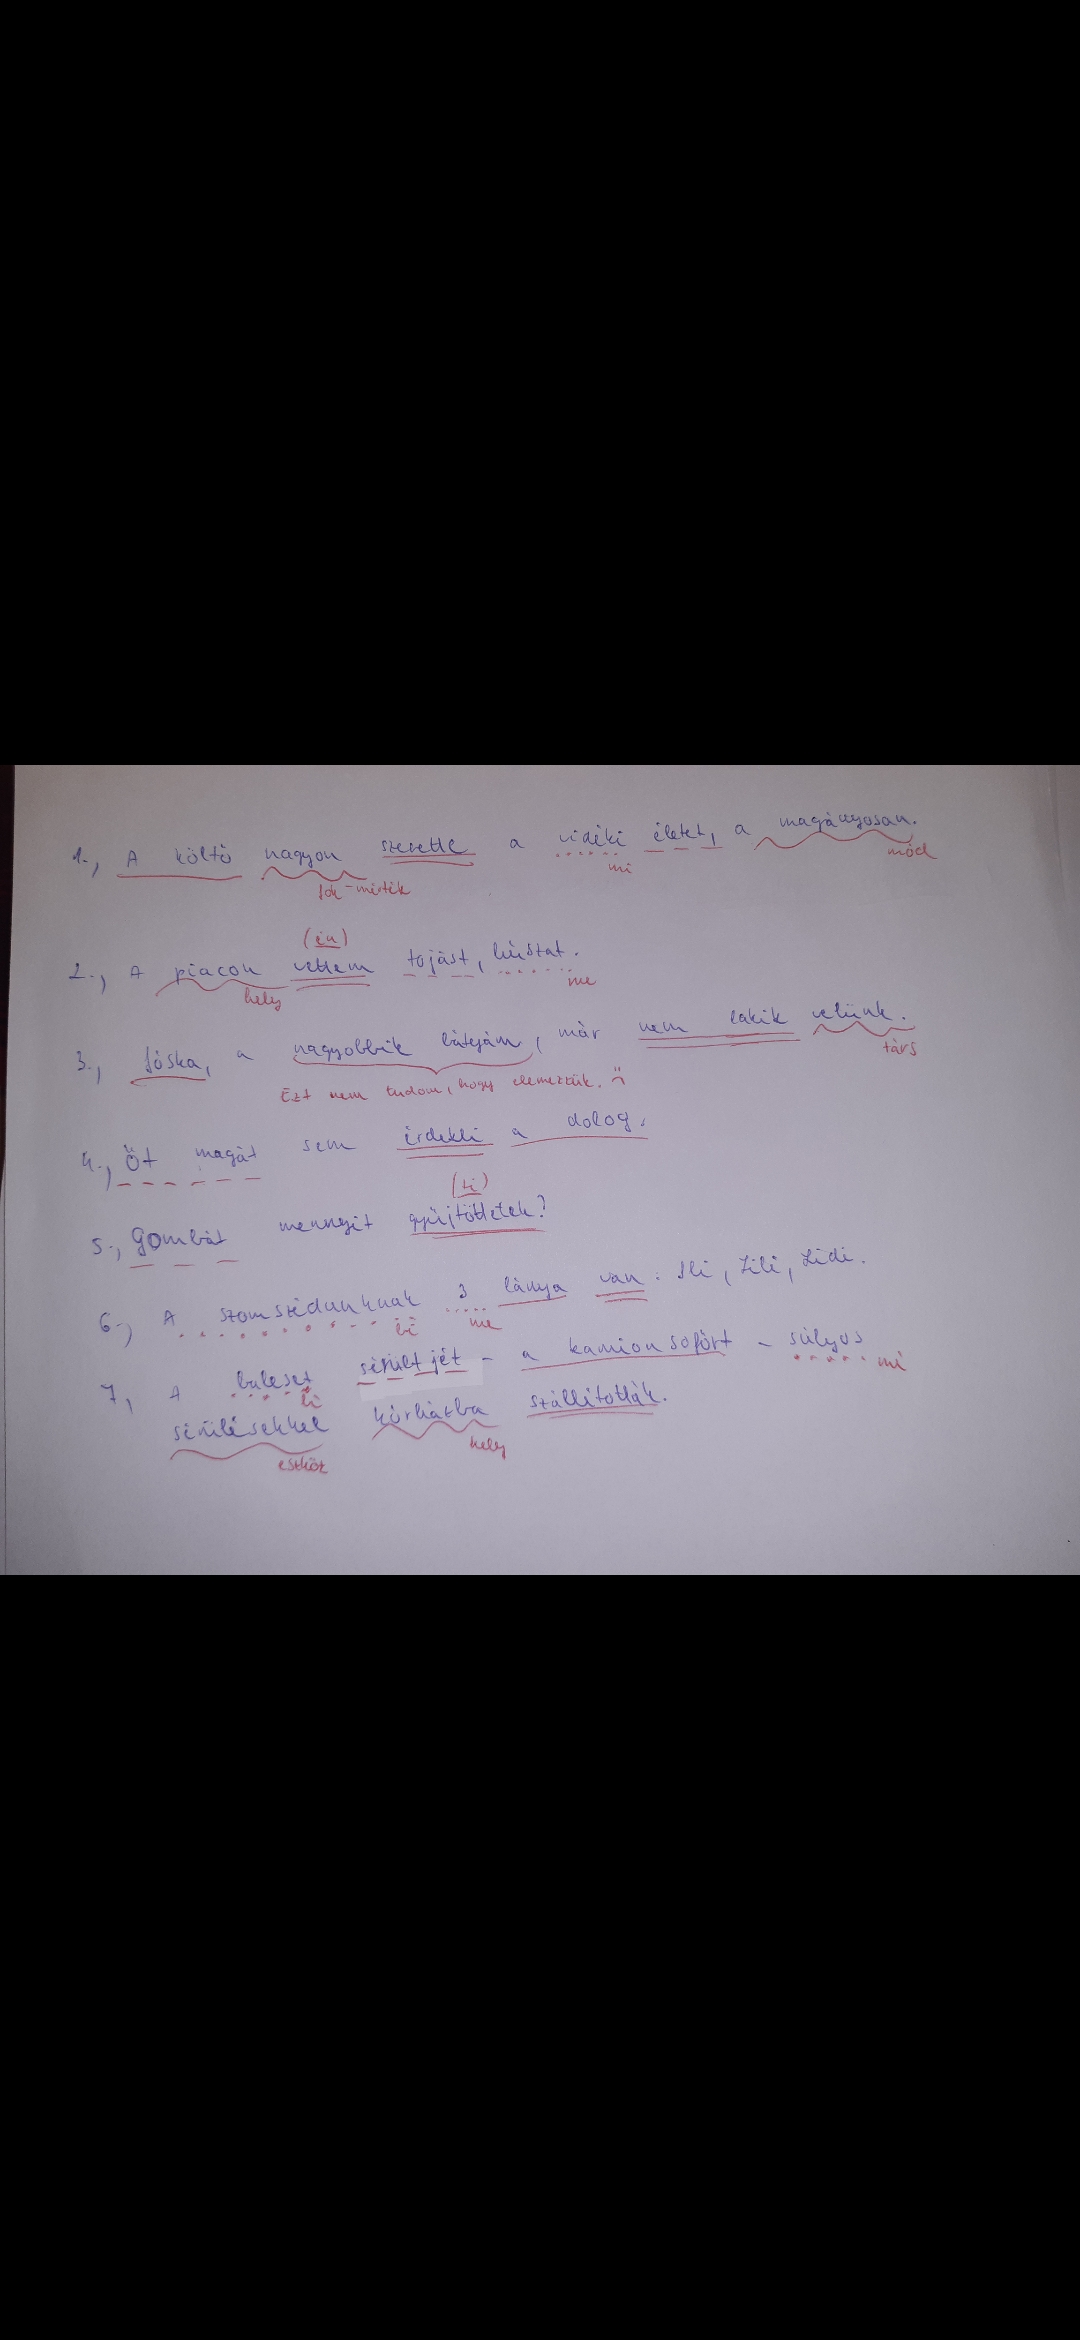 1., A költő nagyon szerette a vidéki életet, a magányosan.
fok-mérték mi mód
(én)
2., A piacon vettem tojást, húszat.
hely me
3., Jóska, a nagyobbik bátyám, már nem lakik velünk.
Ezt nem tudom, hogy elemezzük. társ
4., Őt magát sem érdekli a dolog.
(ti)
5., Gombát mennyit gyűjtöttetek?
6., A szomszédunknak 3 lánya van: Ili, Lili, Lidi.
bi me
7, A baleset sérültjét - a kamionsofőrt - súlyos
bi mi
sérülésekkel kórházba szállították.
eszköz hely